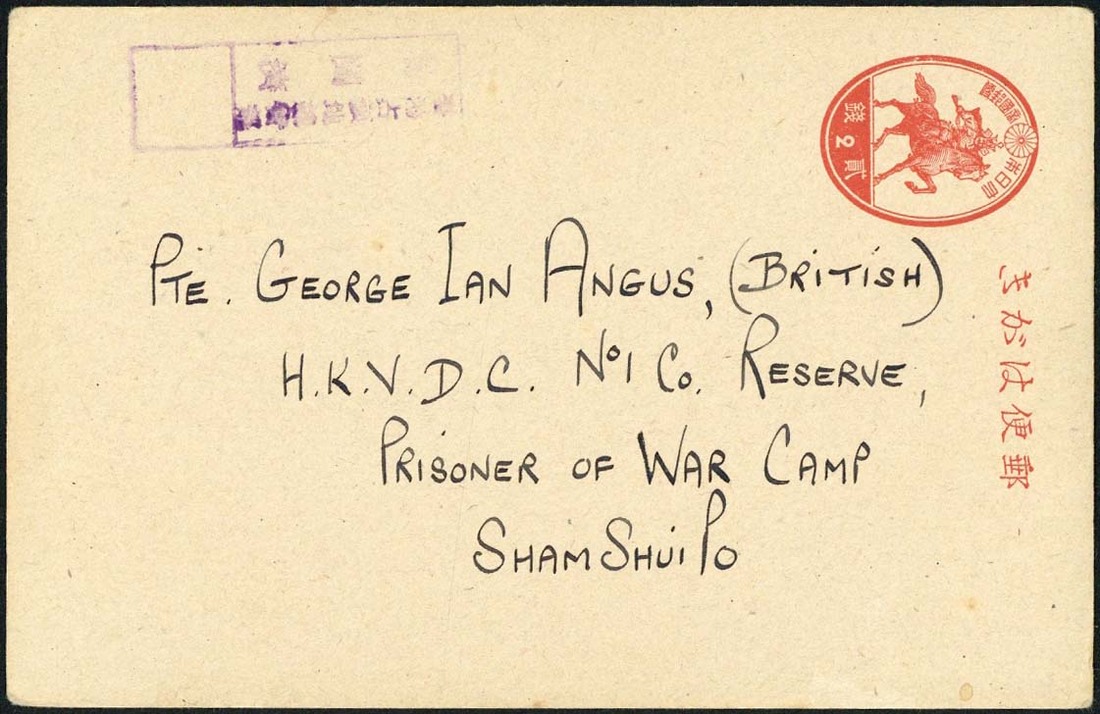 大日本帝國郵便
貳 2 錢
郵便はがき
PTE. GEORGE IAN ANGUS, (BRITISH)
H.K.V.D.C. Nº1 Co. RESERVE,
PRISONER OF WAR CAMP
SHAMSHUI PO